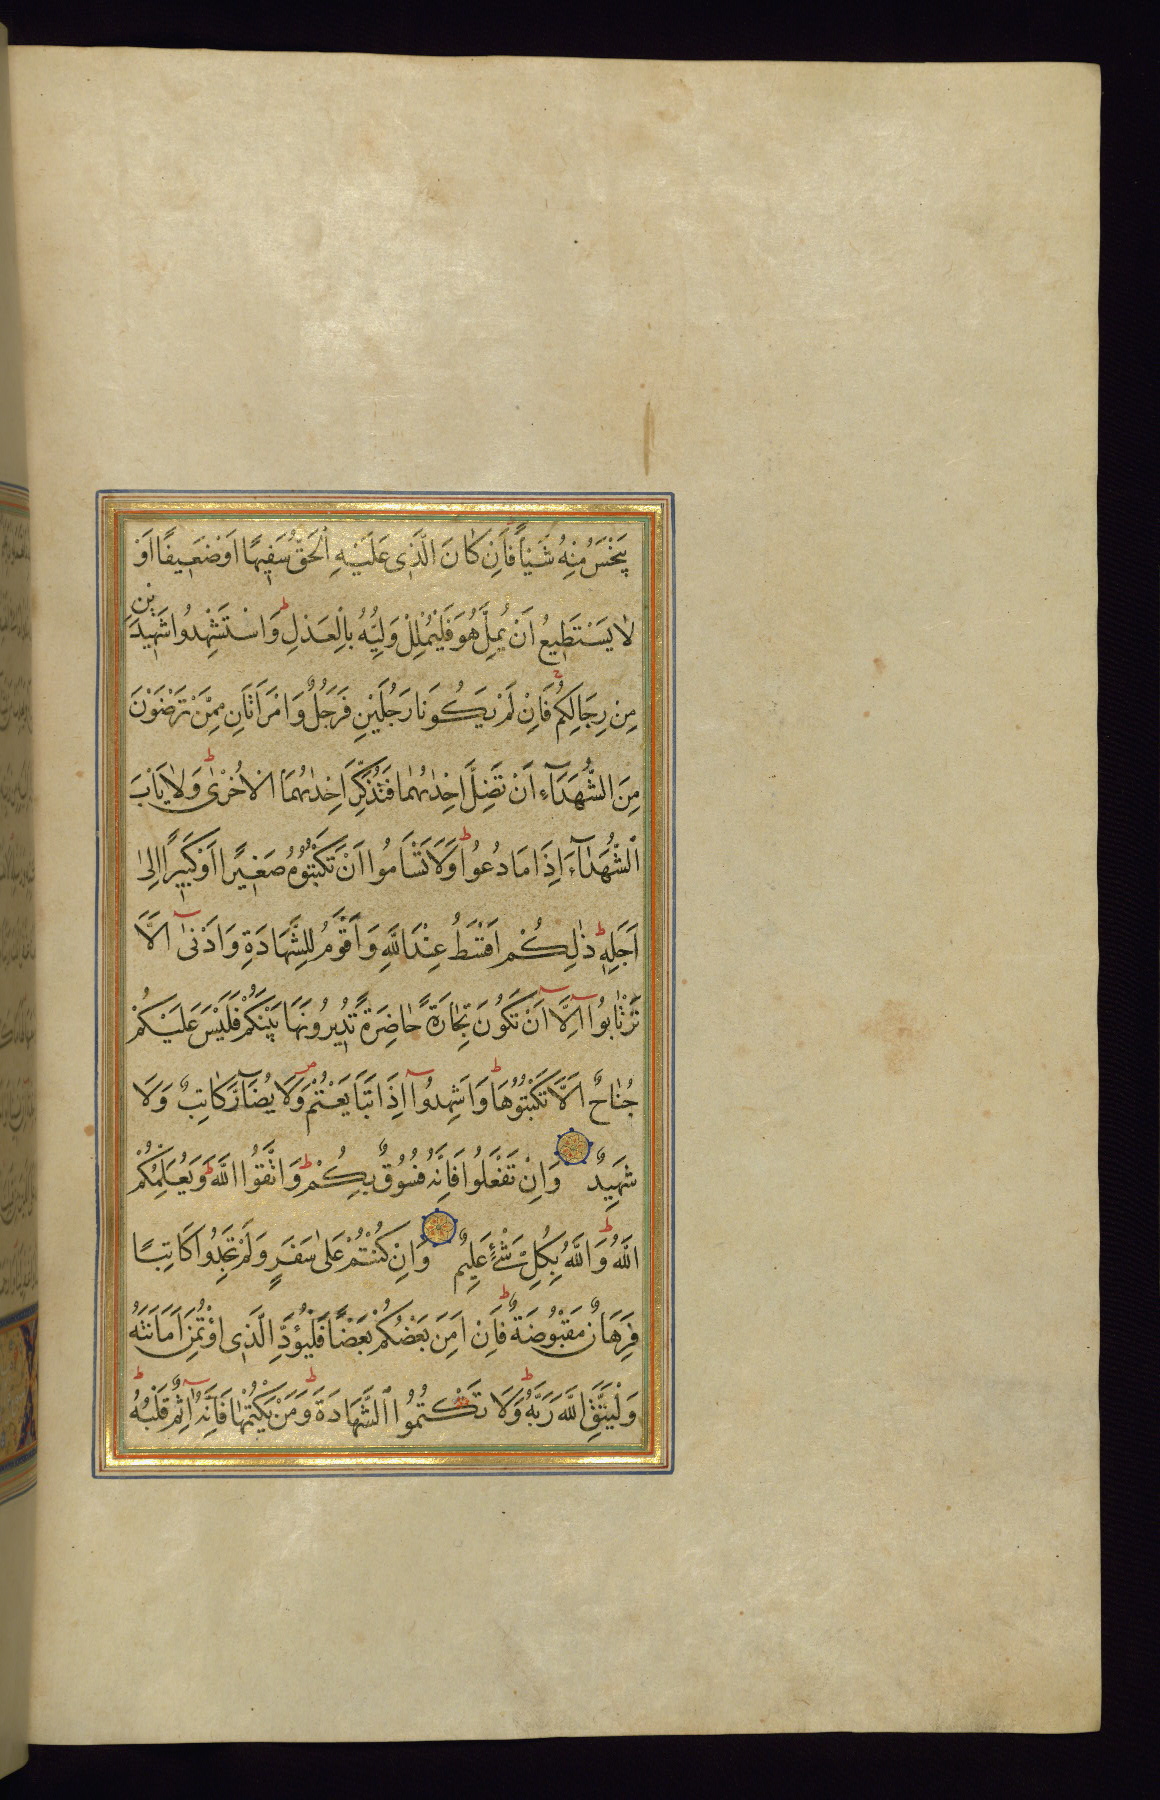 يَبْخَسْ مِنْهُ شَيْئاً فَاِنْ كَانَ الَّذٖى عَلَيْهِ الْحَقُّ سَفٖيهًا اَوْ ضَعٖيفًا اَوْ
لَا يَسْتَطٖيعُ اَنْ يُمِلَّ هُوَ فَلْيُمْلِلْ وَلِيُّهُ بِالْعَدْلِ ط وَاسْتَشْهِدُوا شَهٖيدَيْنِ
مِنْ رِجَالِكُمْ فَاِنْ لَمْ يَكُونَا رَجُلَيْنِ فَرَجُلٌ وَامْرَاَتَانِ مِمَّنْ تَرْضَوْنَ
مِنَ الشُّهَدَآءِ اَنْ تَضِلَّ اِحْدٰىهُمَا فَتُذَكِّرَ اِحْدٰىهُمَا الْاُخْرٰى ط وَلَا يَاْبَ
الشُّهَدَآءُ اِذَا مَا دُعُوا ط وَلَا تَسْاَمُوا اَنْ تَكْتُبُوهُ صَغٖيرًا اَوْ كَبٖيرًا اِلٰى
اَجَلِهٖ ط ذٰلِكُمْ اَقْسَطُ عِنْدَ اللّٰهِ وَاَقْوَمُ لِلشَّهَادَةِ وَاَدْنٰىٓ اَلَّا
تَرْتَابُوٓا اِلَّآ اَنْ تَكُونَ تِجَارَةً حَاضِرَةً تُدٖيرُونَهَا بَيْنَكُمْ فَلَيْسَ عَلَيْكُمْ
جُنَاحٌ اَلَّا تَكْتُبُوهَا ط وَاَشْهِدُوٓا اِذَا تَبَايَعْتُمْ ص وَلَا يُضَآرَّ كَاتِبٌ وَلَا
شَهٖيدٌ وَاِنْ تَفْعَلُوا فَاِنَّهُ فُسُوقٌ بِكُمْ ط وَاتَّقُوا اللّٰهَ ط وَيُعَلِّمُكُمُ
اللّٰهُ ط وَاللّٰهُ بِكُلِّ شَىْءٍ عَلٖيمٌ وَاِنْ كُنْتُمْ عَلٰى سَفَرٍ وَلَمْ تَجِدُوا كَاتِبًا
فَرِهَانٌ مَقْبُوضَةٌ ط فَاِنْ اَمِنَ بَعْضُكُمْ بَعْضًا فَلْيُؤَدِّ الَّذِى اؤْتُمِنَ اَمَانَتَهُ
وَلْيَتَّقِ اللّٰهَ رَبَّهُ ط وَلَا تَكْتُمُوا الشَّهَادَةَ ط وَمَنْ يَكْتُمْهَا فَاِنَّهُٓ اٰثِمٌ قَلْبُهُ ط